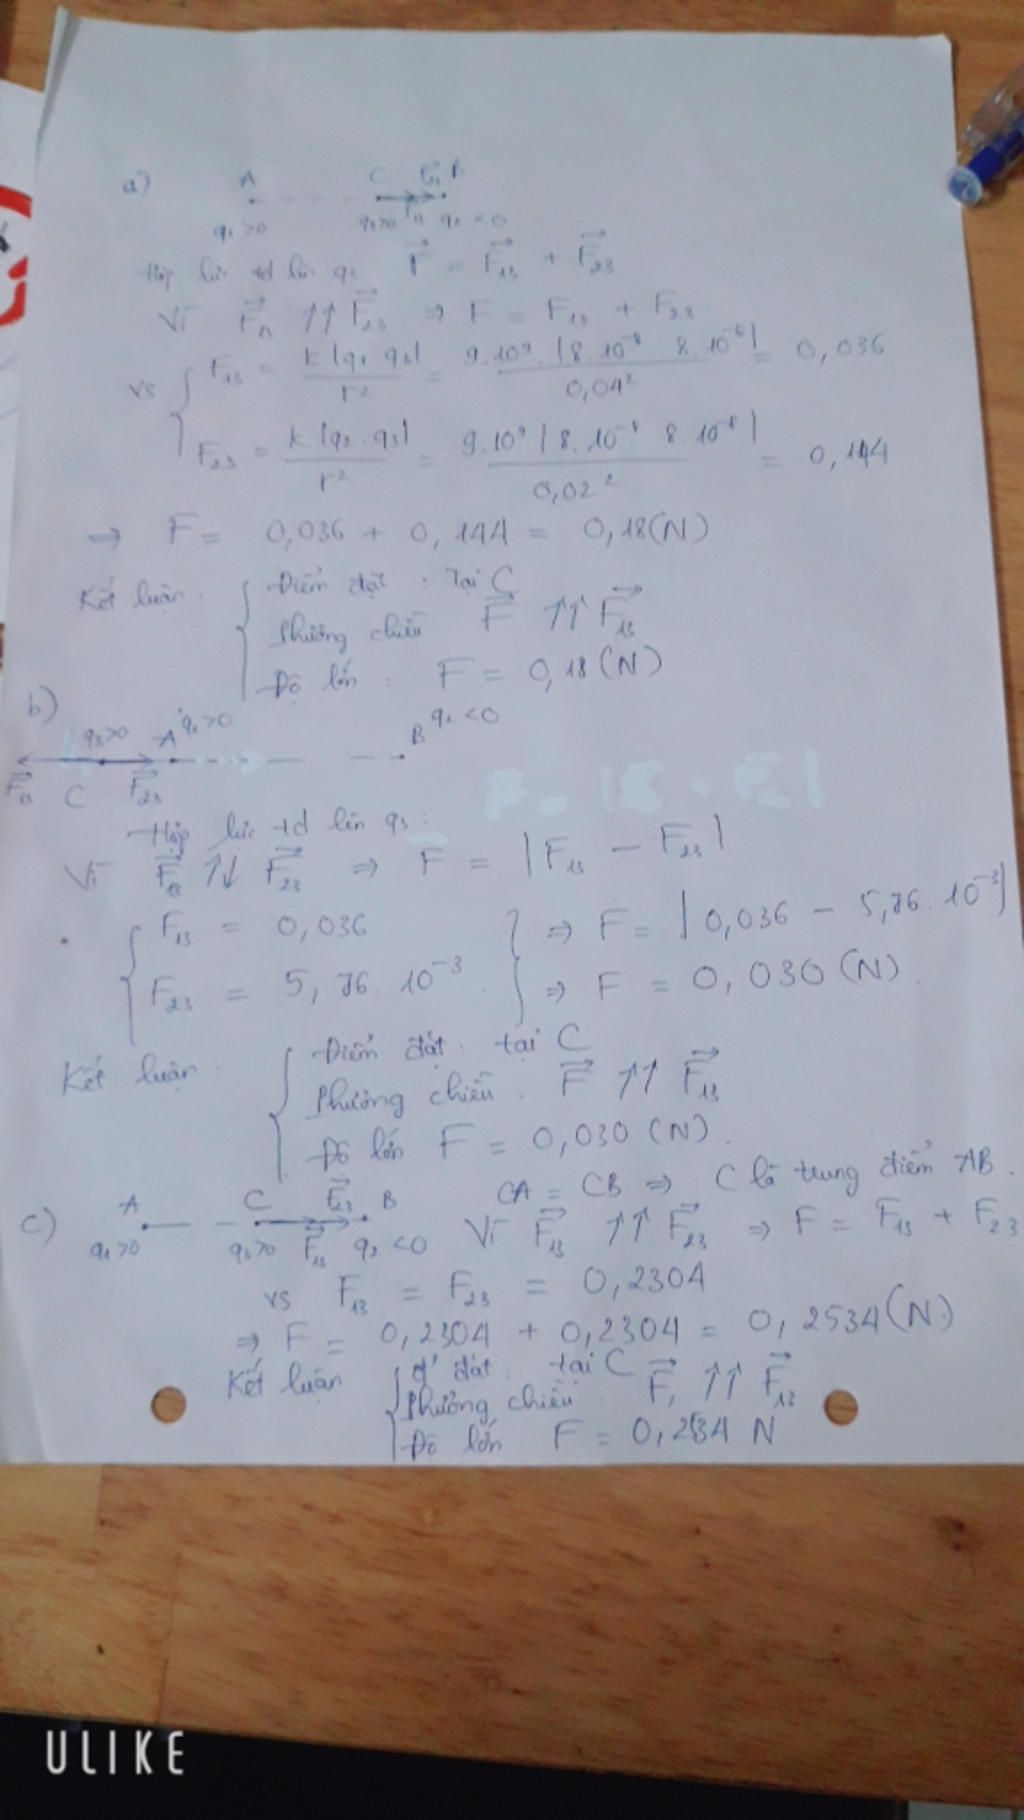 a) A C F₂₃ B
q₁>0 q₃>0 F₁₃ q₂ <0
Hợp lực td lên q₃ F = F₁₃ + F₂₃
Vì F₁₃ ↑↑ F₂₃ ⇒ F = F₁₃ + F₂₃
vs { F₁₃ = k|q₁.q₃| / r² = 9.10⁹.|8.10⁻⁸ 8.10⁻⁸| / 0,04² = 0,036
F₂₃ = k|q₂.q₃| / r² = 9.10⁹|8.10⁻⁸ 8.10⁻⁸| / 0,02² = 0,144
⇒ F = 0,036 + 0,144 = 0,18(N)
Kết luận: { Điểm đặt : Tại C
Phương chiều F ↑↑ F₁₃
Độ lớn : F = 0,18(N)
b)
q₃>0 A q₁>0 B q₂<0
F₁₃ C F₂₃
Hợp lực td lên q₃:
Vì F₁₃ ↑↓ F₂₃ ⇒ F = |F₁₃ - F₂₃|
{ F₁₃ = 0,036 } ⇒ F = |0,036 - 5,76.10⁻³|
F₂₃ = 5,76.10⁻³. ⇒ F = 0,030(N).
Kết luận: { Điểm đặt: tại C
Phương chiều. F ↑↑ F₁₃
Độ lớn F = 0,030 (N).
c) A C F₂₃ B CA = CB ⇒ C là trung điểm AB.
q₁>0 q₃>0 F₁₃ q₂<0 Vì F₁₃ ↑↑ F₂₃ ⇒ F = F₁₃ + F₂₃
vs F₁₃ = F₂₃ = 0,2304
⇒ F = 0,2304 + 0,2304 = 0,2534(N)
Kết luận { đ' đặt: tại C
Phương chiều: F, ↑↑ F₁₃
Độ lớn F = 0,254 N
ULIKE